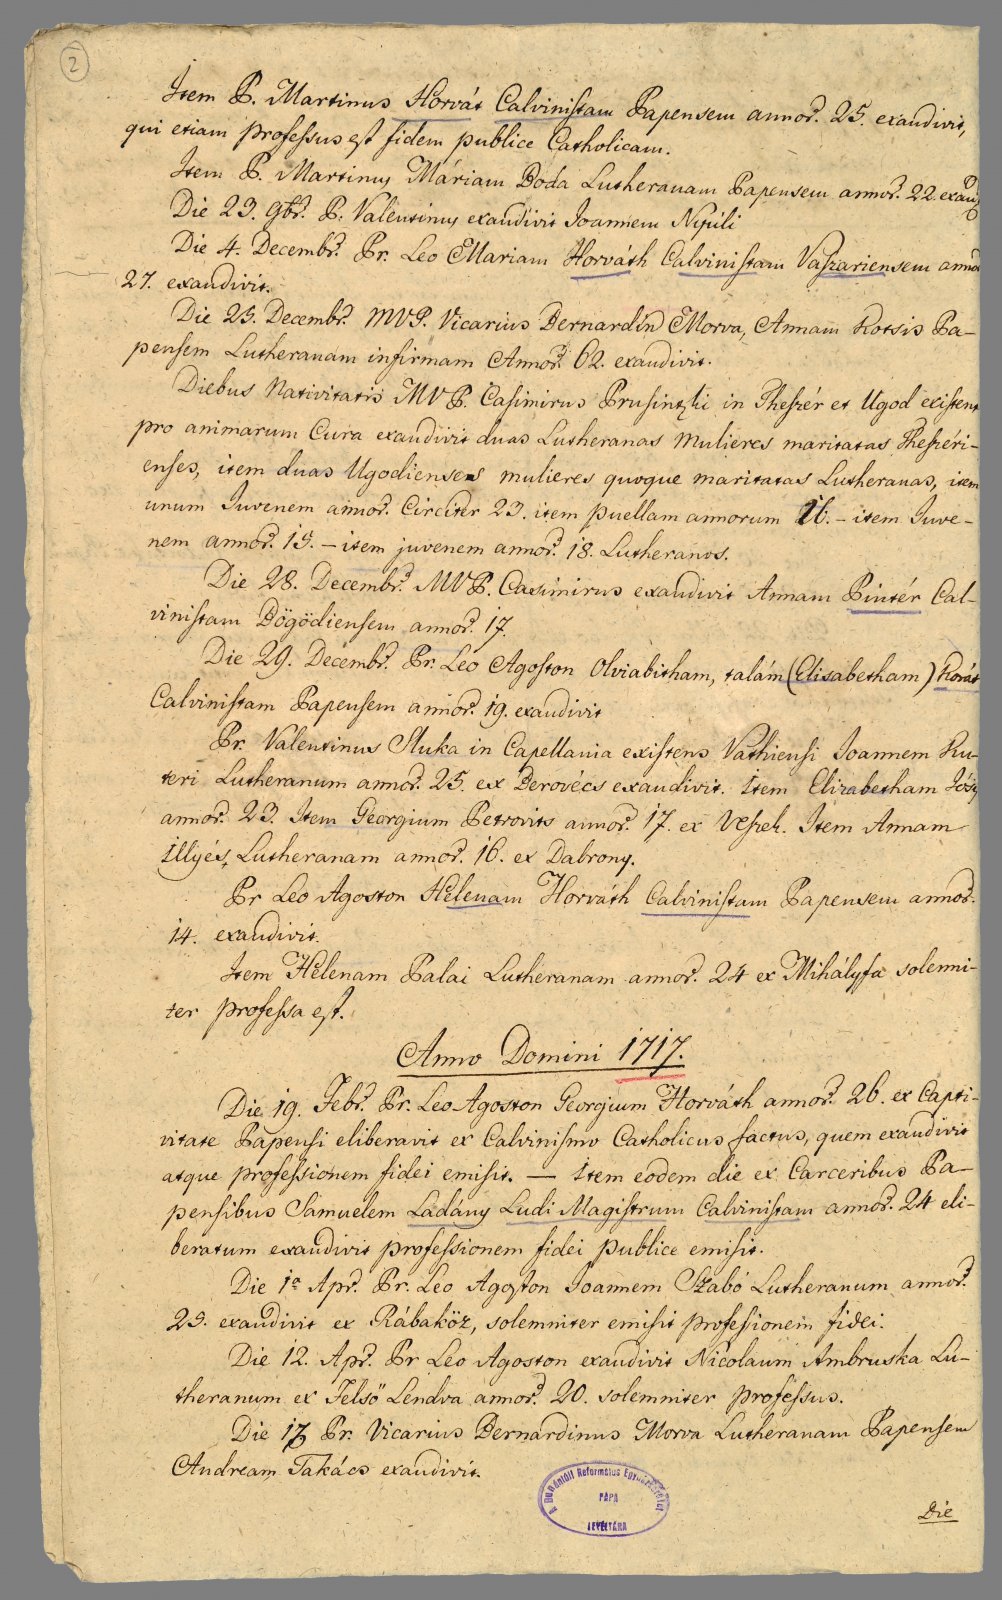 2
Item P. Martinus Horvát Calvinistam Papensem annor. 25. exaudivit,
qui etiam professus est fidem publice Catholicam.
Item P. Martinus Máriam Boda Lutheranam Papensem annor. 22. exaud
Die 23. 9br. P. Valentinus exaudivit Joannem Nyúli
Die 4. Decembr. Pr. Leo Mariam Horváth Calvinistam Vaszariensem annor
27. exaudivit.
Die 25. Decembr. MVP. Vicarius Bernardin Morva, Annam Kotsis Pa-
pensem Lutheranam infirmam Annor. 62. exaudivit.
Diebus Nativitatis MVP. Casimirus Prusintzki in Theszér et Ugod existens
pro animarum Cura exaudivit duas Lutheranas mulieres maritatas Theszéri-
enses, item duas Ugodienses mulieres quoque maritatas Lutheranas, item
unum Juvenem annor. Circiter 23. item puellam annorum 16. - item Juve-
nem annor. 15. - item juvenem annor. 18. Lutheranos.
Die 28. Decembr. MVP. Casimirus exaudivit Annam Pintér Cal-
vinistam Bögödiensem annor. 17.
Die 29. Decembr. Pr. Leo Agoston Olviabitham, talám (Elisabetham) Horvát
Calvinistam Papensem annor. 19. exaudivit
Pr. Valentinus Sluka in Capellania existens Vathiensi Joannem Ku-
teri Lutheranum annor. 25. ex Berovécs exaudivit. Item Elizabetham
annor. 23. Item Georgium Petrovits annor. 17. ex Veszek. Item Annam
Illyés, Lutheranam annor. 16. ex Dabrony.
Pr Leo Agoston Helenam Horváth Calvinistam Papensem annor.
14. exaudivit.
Item Helenam Palai Lutheranam annor. 24 ex Mihályfa solenni-
ter professa est.
Anno Domini 1717.
Die 19. Febr. Pr. Leo Agoston Georgium Horváth annor. 26. ex Capti-
vitate Papensi eliberavit ex Calvinismo Catholicus factus, quem exaudivit
atque professionem fidei emisit. — Item eodem die ex Carceribus Pa-
pensibus Samuelem Ladány Ludi Magistrum Calvinistam annor. 24 eli-
beratum exaudivit professionem fidei publice emisit.
Die 1a Apr. Pr. Leo Agoston Joannem Szabó Lutheranum annor.
25. exaudivit ex Rábaköz, solemniter emisit professionem fidei.
Die 12. Apr. Pr Leo Agoston exaudivit Nicolaum Ambruska Lu-
theranum ex Felsö Lendva annor. 20. solemniter professus.
Die 17 Pr. Vicarius Bernardinus Morva Lutheranam Papensem
Andream Takács exaudivit.
A Dunántúli Református Egyházkerület
PÁPA
LEVÉLTÁRA
Die